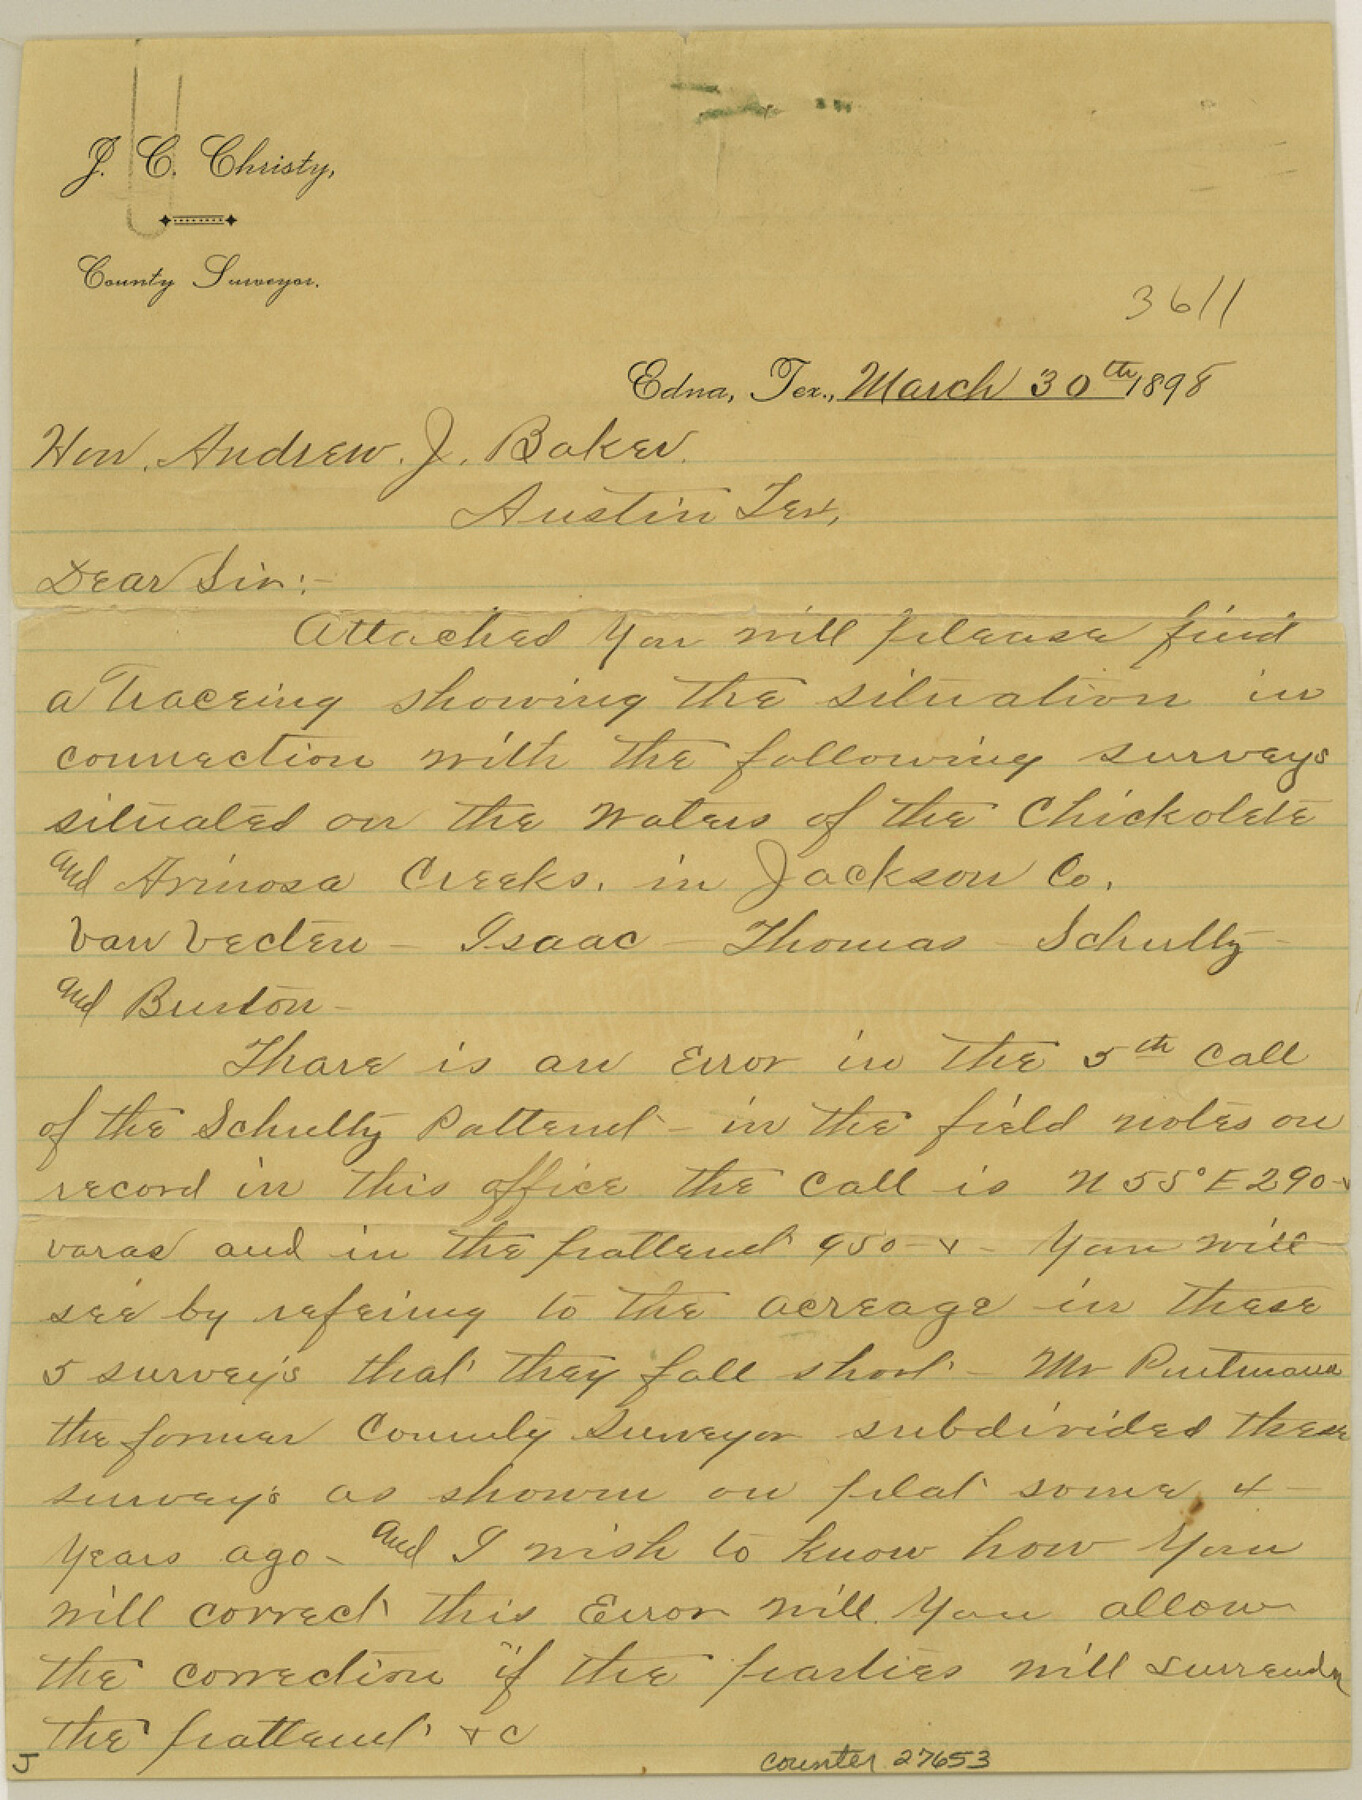 J. C. Christy,
County Surveyor.
3611
Edna, Tex., March 30th 1898
Hon. Andrew. J. Baker.
Austin Tex,
Dear Sir:-
Attached you will please find
a Traceing showing the situation in
connection with the following surveys
situated on the waters of the Chickolete
and Arinosa Creeks. in Jackson Co.
Van Vecten - Isaac - Thomas - Schultz -
and Burton -
Thare is an Error in the 5th Call
of the Schultz Pattent - in the field notes on
record in this office the Call is N 55° E 290 -
varas and in the pattent 950 - v - You will
see by refering to the acreage in these
5 survey's that they fall short - Mr Putmane
the former County Surveyor subdivided these
survey's as shown on plat some 4 -
Years ago - and I wish to know how You
will correct this Error will You allow
the correction if the parties will surrender
the pattent & C
J
counter 27653